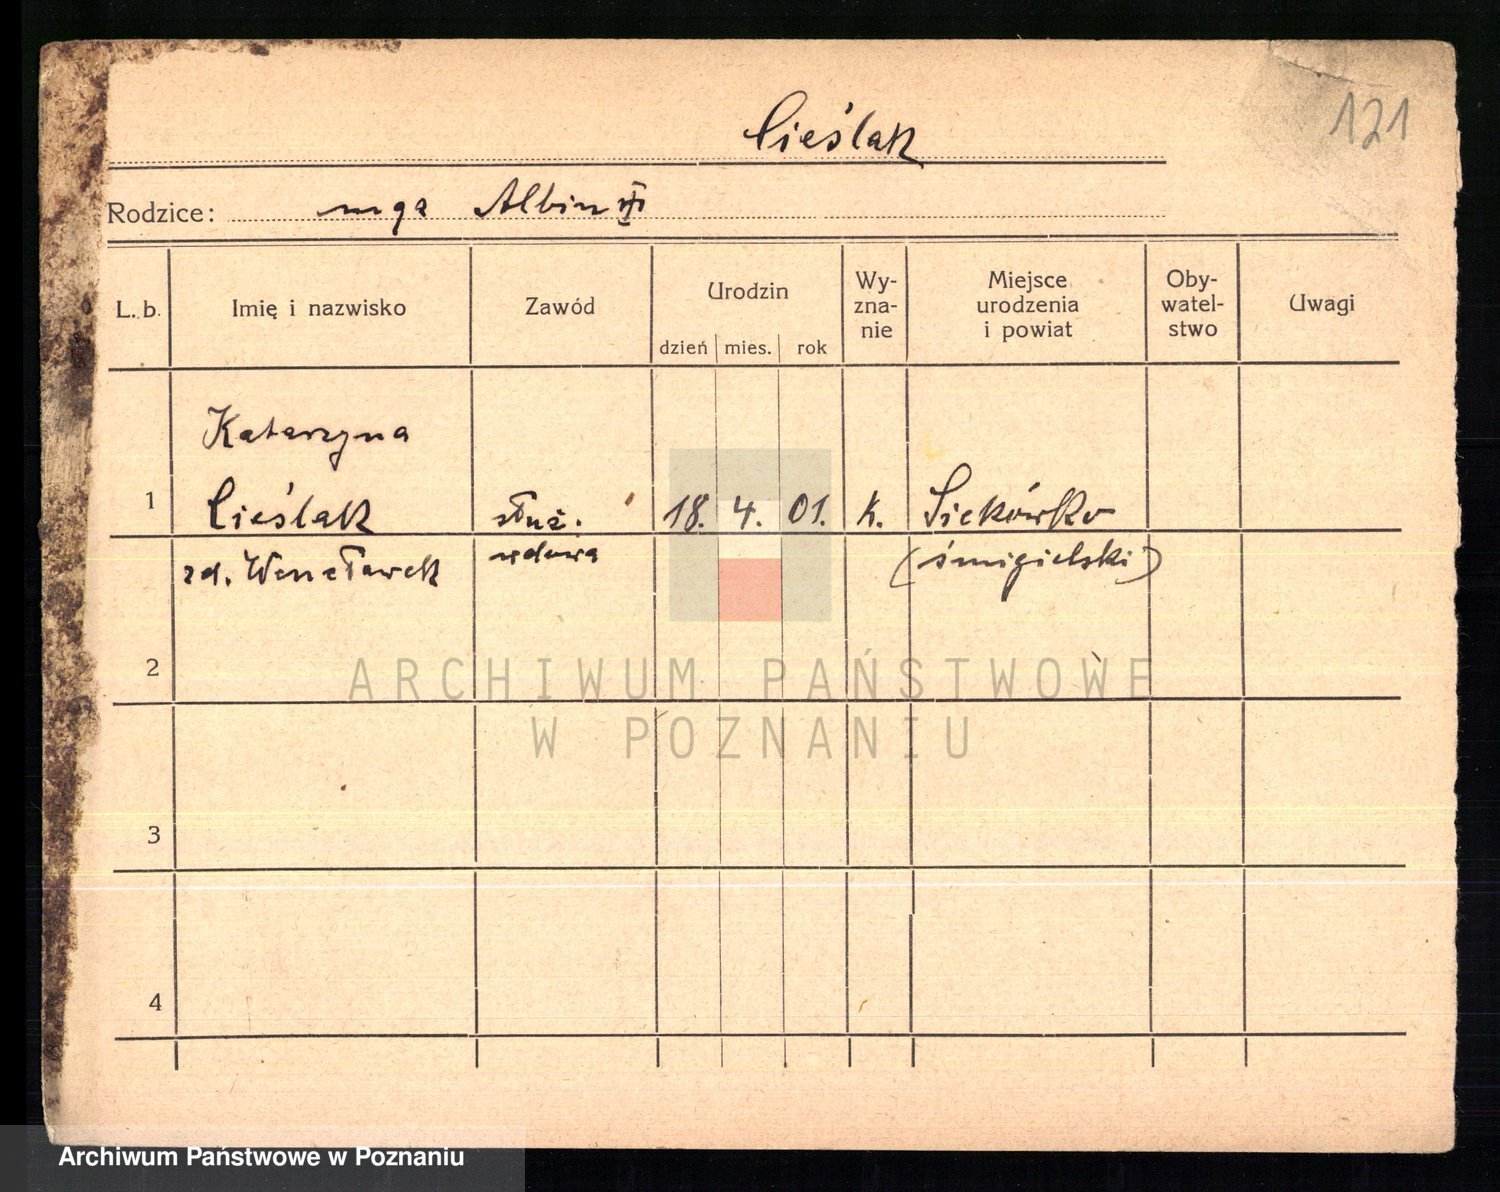 121
Cieślak
Rodzice: mąż Albin
L. b. Imię i nazwisko Zawód Urodzin Wy- Miejsce Oby- Uwagi
zna- urodzenia watel-
nie i powiat stwo
dzień mies. rok
Katarzyna
1 Cieślak służ. 18. 4. 01. k. Siekówko
zd. wdowa (śmigielski)
2
ARCHIWUM PAŃSTWOWE
W POZNANIU
3
4
Archiwum Państwowe w Poznaniu